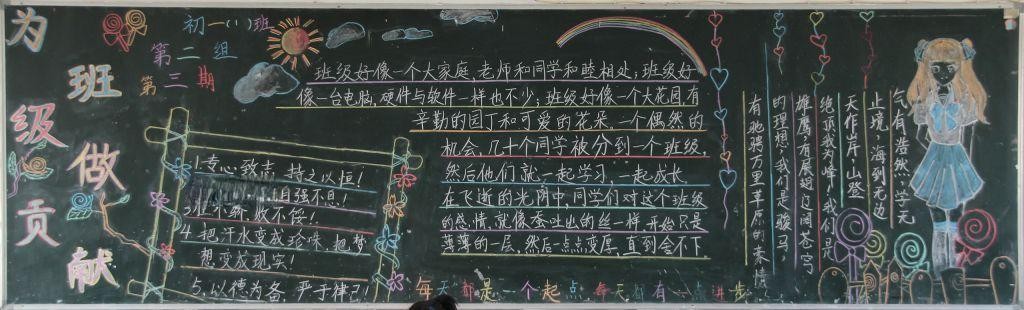 为班级做贡献
初一(1)班
第二组
第三期
班级好像一个大家庭,老师和同学和睦相处;班级好
像一台电脑,硬件与软件一样也不少;班级好像一个大花园有
辛勤的园丁和可爱的花朵。一个偶然的
机会,几十个同学被分到一个班级,
然后他们就一起学习,一起成长。
在飞逝的光阴中,同学们对这个班级
的感情,就像蚕吐出的丝一样,开始只是
薄薄的一层,然后一点点变厚,直到会不下
1.专心致志,持之以恒!
自强不息!
3.胜不骄,败不馁!
4.把汗水变成珍珠,把梦
想变成现实!
5.以德为备,严于律己!
气有浩然,学无
止境,海到无边
天作岸,山登
绝顶我为峰,我们是
雄鹰,有展翅辽阔苍穹
的理想,我们是骏马,
有驰骋万里草原的豪情
每天都是一个起点,每天都有一点进步